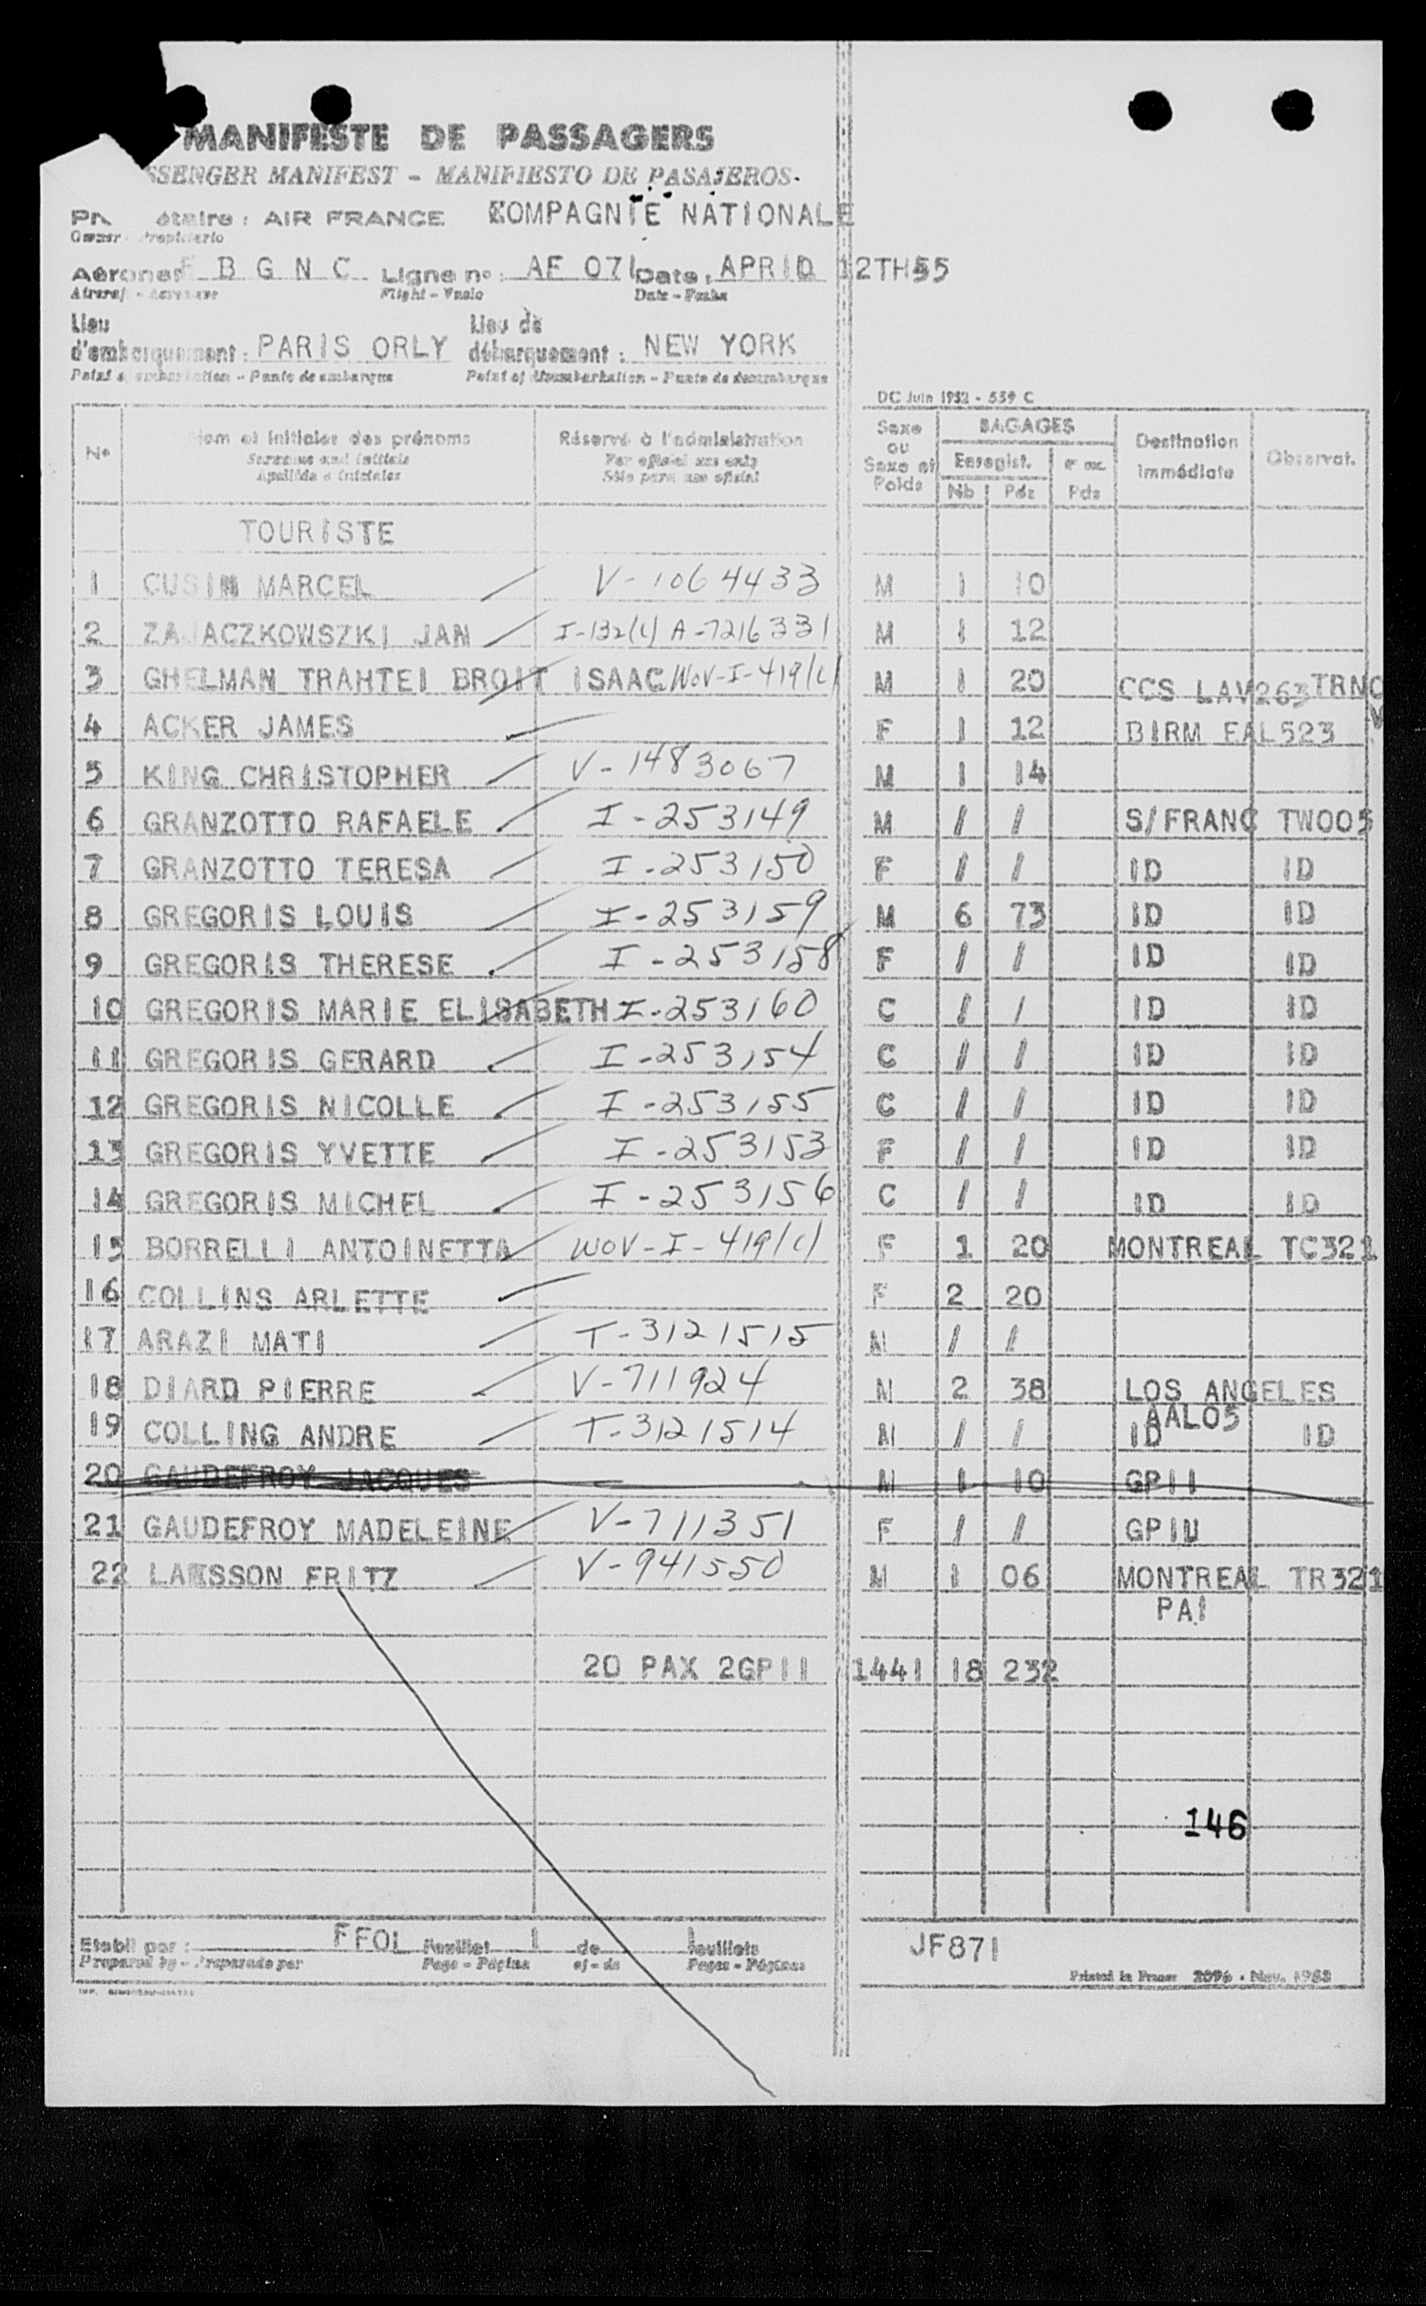 MANIFESTE DE PASSAGERS
SSENGER MANIFEST - MANIFIESTO DE PASAJEROS
AIR FRANCE COMPAGNIE NATIONALE
F B G N C Ligne n°: AF 071 Date: 12TH 55
Flight - Vuelo Date - Fecha
Lieu Lieu de
d'embarquement: PARIS ORLY débarquement: NEW YORK
DC Juin 1952 - 559 C
N° Nom et initiales des prénoms Réservé à l'administration Sexe ou Sexe et Poids BAGAGES Enregist. Nb Pds Pds Destination immédiate Observat.
Surname and initials For official use only
Apellido e iniciales Sólo para uso oficial
TOURISTE
1 CUSIN MARCEL V-1064433 M 1 10
2 ZAJACZKOWSZKI JAN I-132(c) A-7216331 M 1 12
3 GHELMAN TRAHTEI BROIT ISAAC WOV-I-419(c) M 1 20 CCS LAV263 TRNC
V
4 ACKER JAMES F 1 12 BIRM EAL523
5 KING CHRISTOPHER V-1483067 M 1 14
6 GRANZOTTO RAFAELE I-253149 M / / S/FRANC TW005
7 GRANZOTTO TERESA I-253150 F / / ID ID
8 GREGORIS LOUIS I-253159 M 6 73 ID ID
9 GREGORIS THERESE I-253158 F / / ID ID
10 GREGORIS MARIE ELISABETH I-253160 C / / ID ID
11 GREGORIS GERARD I-253154 C / / ID ID
12 GREGORIS NICOLLE I-253155 C / / ID ID
13 GREGORIS YVETTE I-253153 F / / ID ID
14 GREGORIS MICHEL I-253156 C / / ID ID
15 BORRELLI ANTOINETTA WOV-I-419(c) F 1 20 MONTREAL TC321
16 COLLINS ARLETTE F 2 20
17 ARAZI MATI T-3121515 M / /
18 DIARD PIERRE V-711924 M 2 38 LOS ANGELES
AALO5
19 COLLING ANDRE T-3121514 M / / ID ID
20 GAUDEFROY JACQUES M 1 10 GPII
21 GAUDEFROY MADELEINE V-711351 F / / GPIU
22 FRITZ V-941550 M 1 06 MONTREAL TR321
PAI
20 PAX 2GPII 1441 18 232
146
Etabli par: FFOL Feuillet 1 de 1 feuillets JF871
Prepared by - Preparado por Page - Página of - de Pages - Páginas Printed in France 2096 - Nov. 1953